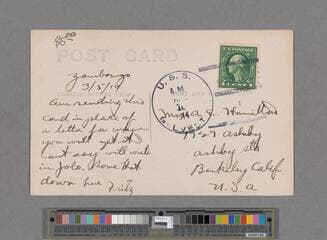 POST CARD
Zamboango
3/5/14
Am sending this
card in place of
a letter for when
you will get it
Cant say will write
in Jolo. None hot
down here
Fritz
U.S.S.
A.M.
14
Mrs A. E. Hamilton
1927 ashby
ashby sta
Berkeley Calif
U.S.A